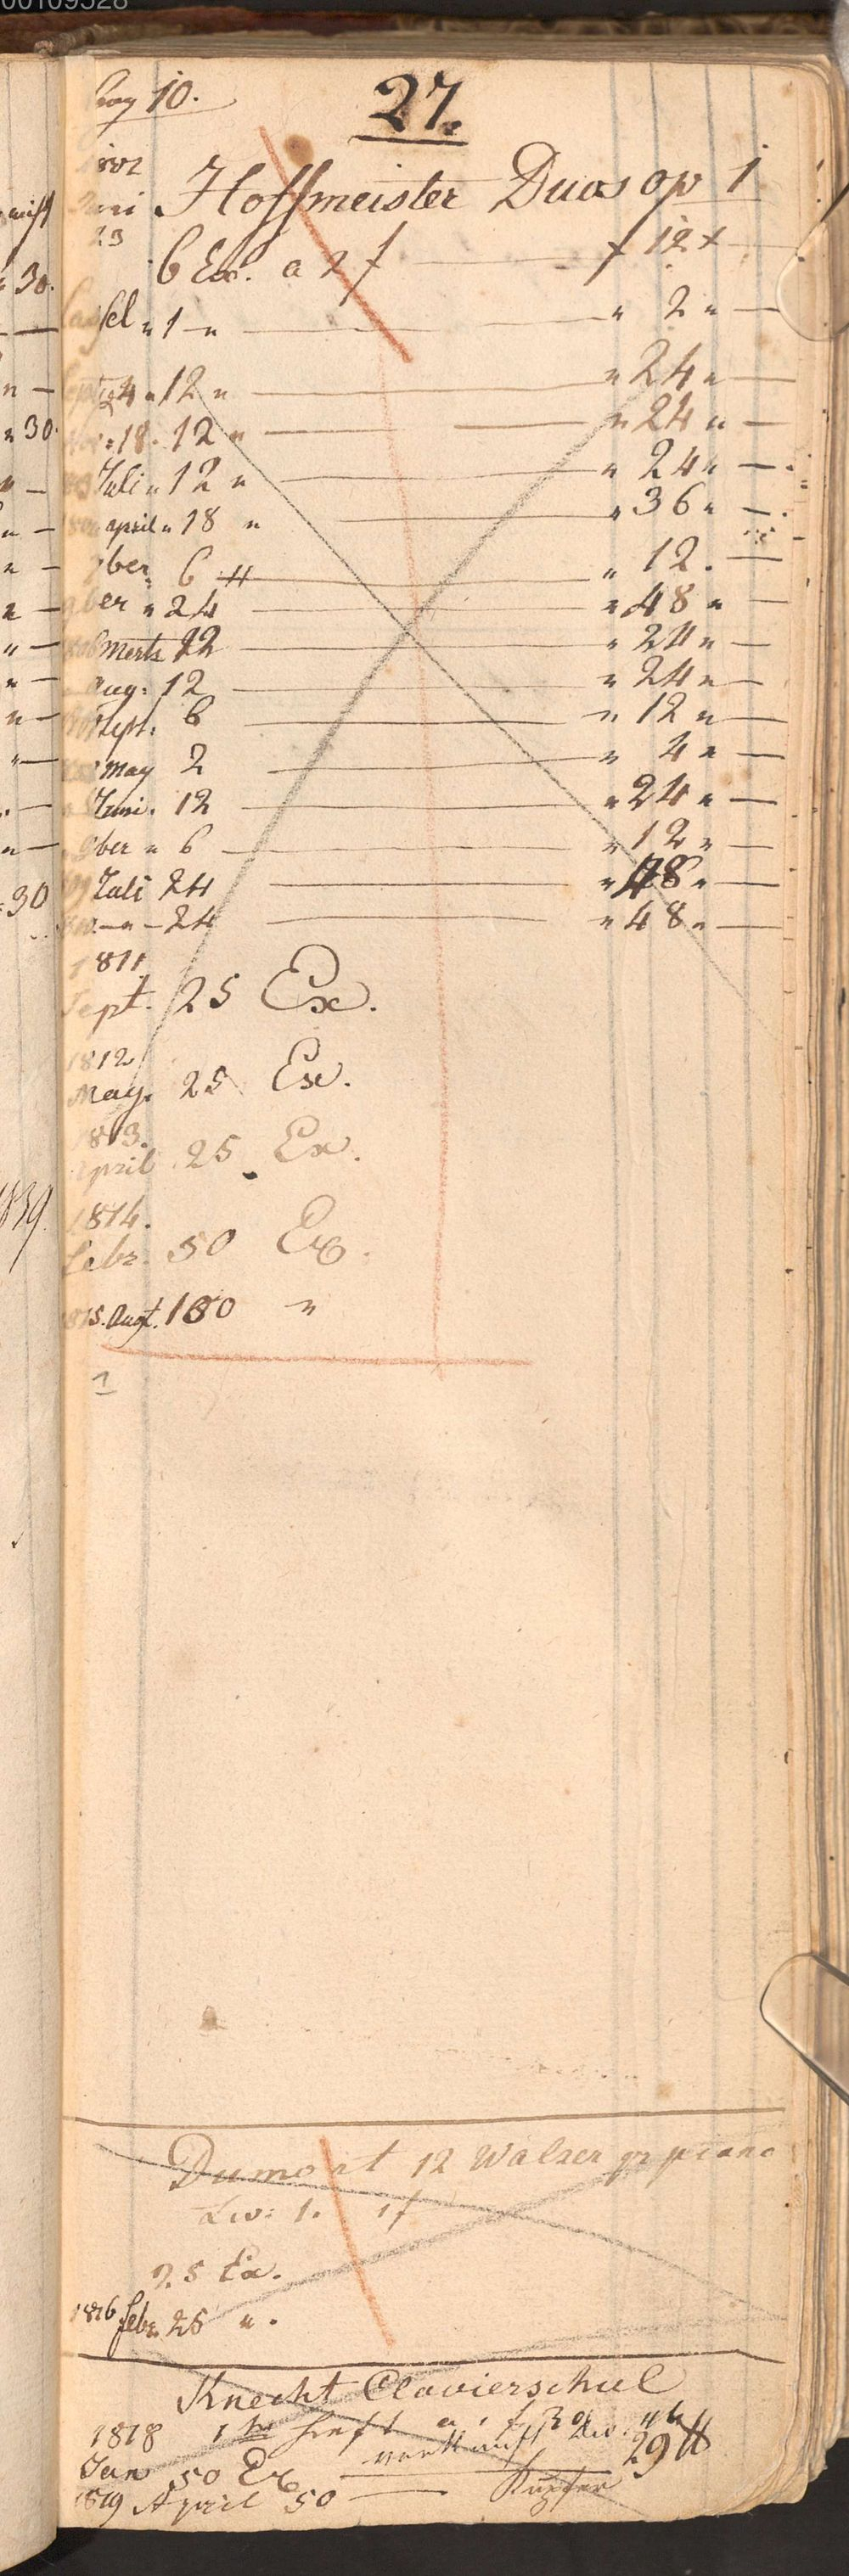 00109528
pag 10.
27.
1802
Juni Hoffmeister Duos op 1
23
6 Ex. a 2 f f 12 x
Cassel " 1 " " 2 "
4 " 12 " " 24 "
18. 12 " " 24 "
Juli " 12 " " 24 "
april " 18 " " 36 "
ber 6 " 12.
ber " 24 " 48 "
Mertz 12 " 24 "
Aug: 12 " 24 "
Sept. 6 " 12 "
May 2 " 4 "
Juni. 12 " 24 "
ber " 6 " 12 "
Juli 24 " 48 "
" 24 " 48 "
1811.
Sept. 25 Ex.
1812
May. 25 Ex.
1813.
April 25 Ex.
1814.
Febr. 50 Ex.
1815. Augt. 100 "
1
Dumont 12 Walzer pr piano
Liv: 1. 1 f
25 Ex.
1816 Febr. 25 ".
Knecht Clavierschul
1818 1te Heft a 1 f 30
Jan 50 Ex 29
1819 April 50 Kupfer
30.
30.
30
1839